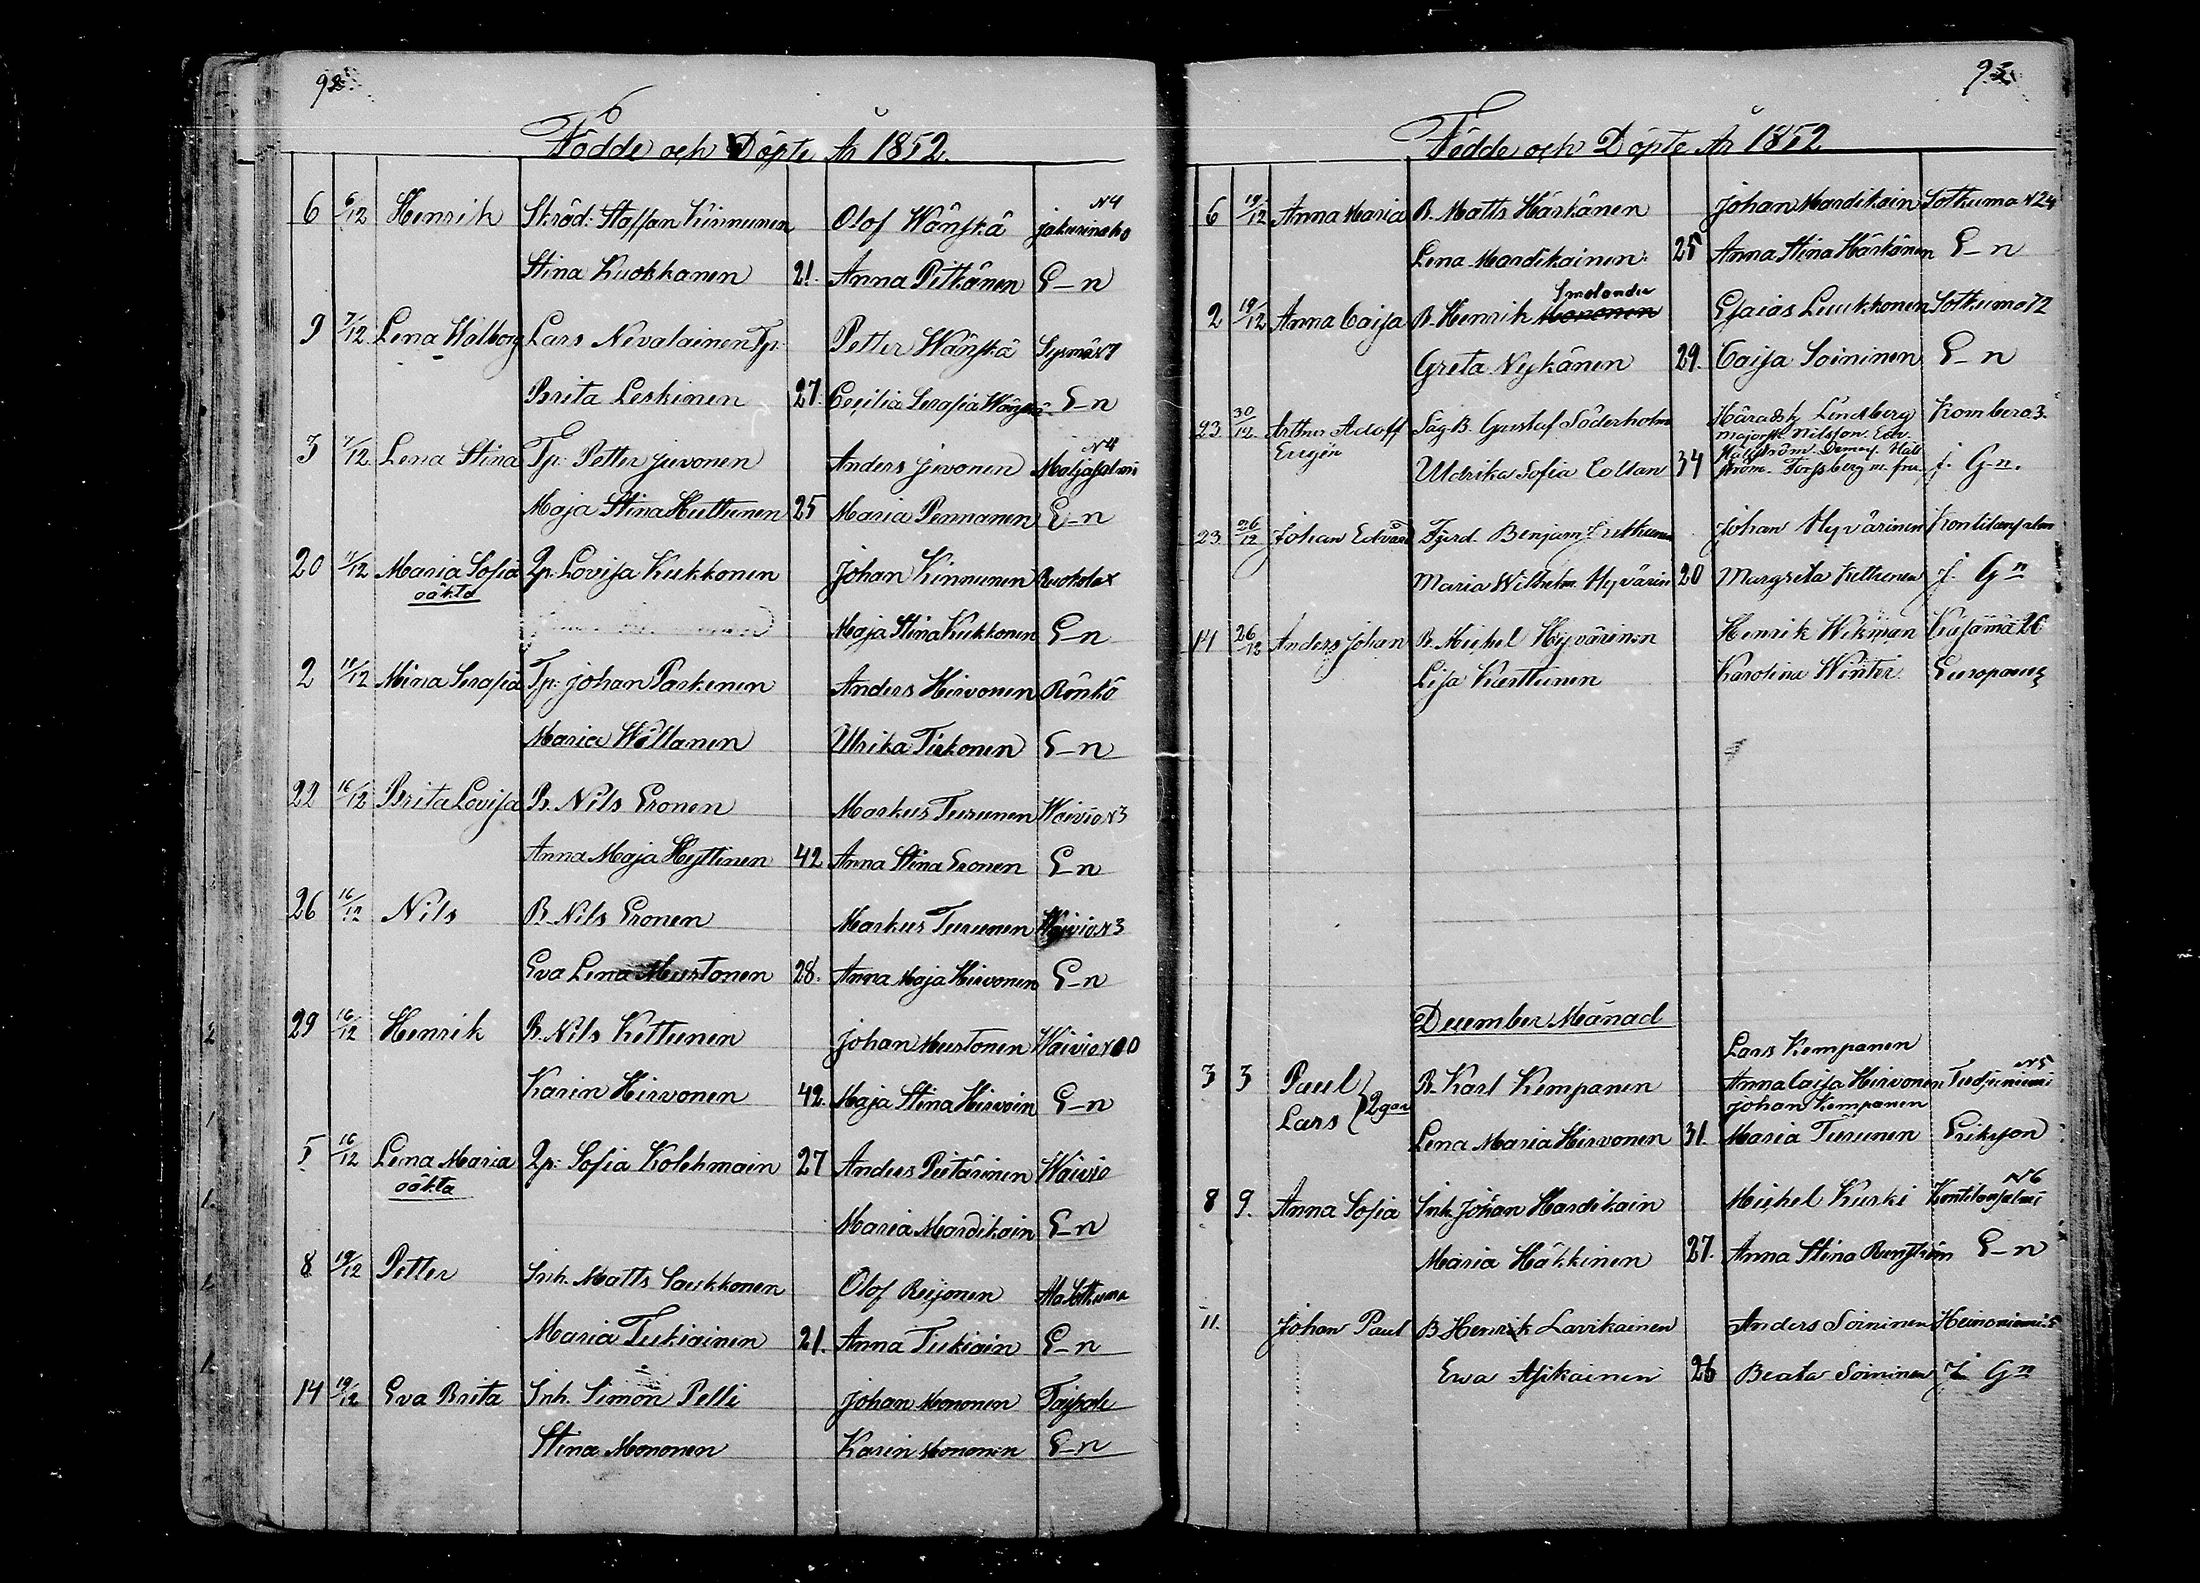 92
Födde och Döpte År 1852
6 6/12 Henrik Skräd: Staffan Kinnunen Olof Wänskä N4 Jakurinaho
Stina Kuokkanen 21. Anna Pitkänen E-n
9 7/12 Lena Walborg Lars Nevalainen Tp: Petter Wänskä Sysmä N7
Brita Leskinen 27. Cecilia Serafia Wänskä E-n
3 7/12 Lena Stina Tp: Petter Juvonen Anders Juvonen N4
Maja Stina Huttunen 25 Maria Pennanen E-n
20 Maria Sofia Qp. Lovisa Kukkonen Johan Kinnunen
oäkta
Maja Stina Kukkonen E-n
2 Mina Serafia Tp: Johan Parkinen Anders Hirvonen Rönkö
Maria Ulrika Tirkonen E-n
22 16/12 Brita Lovisa B. Nils Eronen Markus Turunen Waivio N3
Anna Maja Hyttinen 42 Anna Stina Eronen E-n
26 16/12 Nils B. Nils Eronen Markus Turunen Waivio N3
Eva Lena Mustonen 28. Anna Maja Hirvonen E-n
29 16/12 Henrik B. Nils Kettunen Johan Mustonen Waivio
Karin Hirvonen 42. Maja Stina Hirvoin E-n
5 16/12 Lena Maria Qp: Sofia Kolehmain 27 Anders Pietärinen Waivio
oäkta
Maria Mardikain E-n
8 19/12 Petter Inh. Matts Laukkonen Olof Reijonen
Maria Tukiainen 21. Anna Tukiain E-n
14 19/12 Eva Brita Inh. Simon Pelli Johan Mononen Taipale
Stina Mononen Karin Mononen E-n
93
Födde och Döpte År 1852
6 19/12 Anna Maria B. Matts Härkänen Johan Mardikain Sotkuma N24
Lena Mardikainen 25 Anna Stina Härkänen E-n
Smolander
2 19/12 Anna Caisa B. Henrik Mononen Esaias Luukkonen Sotkuma 72
Greta Nykänen 29. Caisa Soininen E-n
23 30/12 Arthur Adolf Säg B. Gustaf Söderholm Härads Lindsberg Kombero 3.
Eugén
Uldrika Sofia Coltan 34 Forssberg m. fru J. G-n.
23 26/12 Johan Edvard Fjerd. Benjam Johan Hyvärinen
Maria Wilhelm. Hyvärin 20 Margreta J. Gn
14 26/12 Anders Johan B. Michel Hyvärinen Henrik Wikman
Lisa Karttunen Karolina Winter Europaeus
December Månad
Lars Kempanen
3 3 Paul B. Karl Kempanen Anna Caisa Hirvonen N5
Lars Johan Kempanen
Lena Maria Hirvonen 31. Maria Turunen Eriksson
8 9. Anna Sofia Inh. Johan Mardikain Michel Kurki N6 Kontilansalmi
Maria Häkkinen 27. Anna Stina E-n
11. Johan Paul B Henrik Lavikainen Anders Soininen Heinoniemi 5
Ewa Asikainen 26 Beata Soininen J. Gn